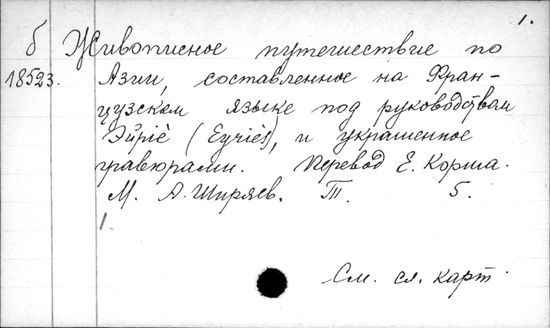 1.
б Живописное путешествие по
18523. Азии, составленное на Фран-
цузском языке под руководством
Эйрiè (Eyriès), и украшенное
гравюрами. Перевод Е. Корша.
М. А. Ширяев. Т. 5.
1.
См. сл. карт.